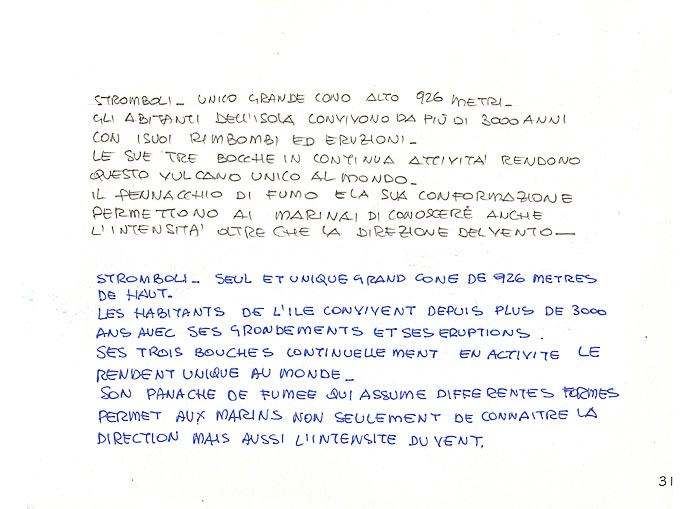 STROMBOLI_ UNICO GRANDE CONO ALTO 926 METRI_
GLI ABITANTI DELL'ISOLA CONVIVONO DA PIÙ DI 3000 ANNI
CON I SUOI RIMBOMBI ED ERUZIONI_
LE SUE TRE BOCCHE IN CONTINUA ATTIVITA' RENDONO
QUESTO VULCANO UNICO AL MONDO_
IL PENNACCHIO DI FUMO E LA SUA CONFORMAZIONE
PERMETTONO AI MARINAI DI CONOSCERE ANCHE
L'INTENSITA' OLTRE CHE LA DIREZIONE DEL VENTO_
STROMBOLI_ SEUL ET UNIQUE GRAND CONE DE 926 METRES
DE HAUT_
LES HABITANTS DE L'ILE CONVIVENT DEPUIS PLUS DE 3000
ANS AVEC SES GRONDEMENTS ET SES ERUPTIONS.
SES TROIS BOUCHES CONTINUELLEMENT EN ACTIVITE LE
RENDENT UNIQUE AU MONDE_
SON PANACHE DE FUMEE QUI ASSUME DIFFERENTES FORMES
PERMET AUX MARINS NON SEULEMENT DE CONNAITRE LA
DIRECTION MAIS AUSSI L'INTENSITE DU VENT.
31